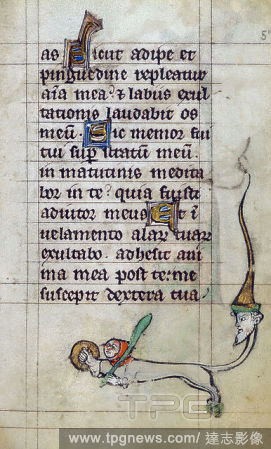 as Sicut adipe et
pinguedine repleatur
aīa mea: & labiis exul
tationis laudabit os
meū. Sic memor fui
tui sup stratum meū.
in matutinis medita
bor in te: quia fuisti
adiutor meus Et ī
uelamento alaꝝ tuaꝝ
exultabo. adhesit ani
ma mea post te: me
suscepit dextera tua
5
TPG
www.tpgnews.com/達志影像